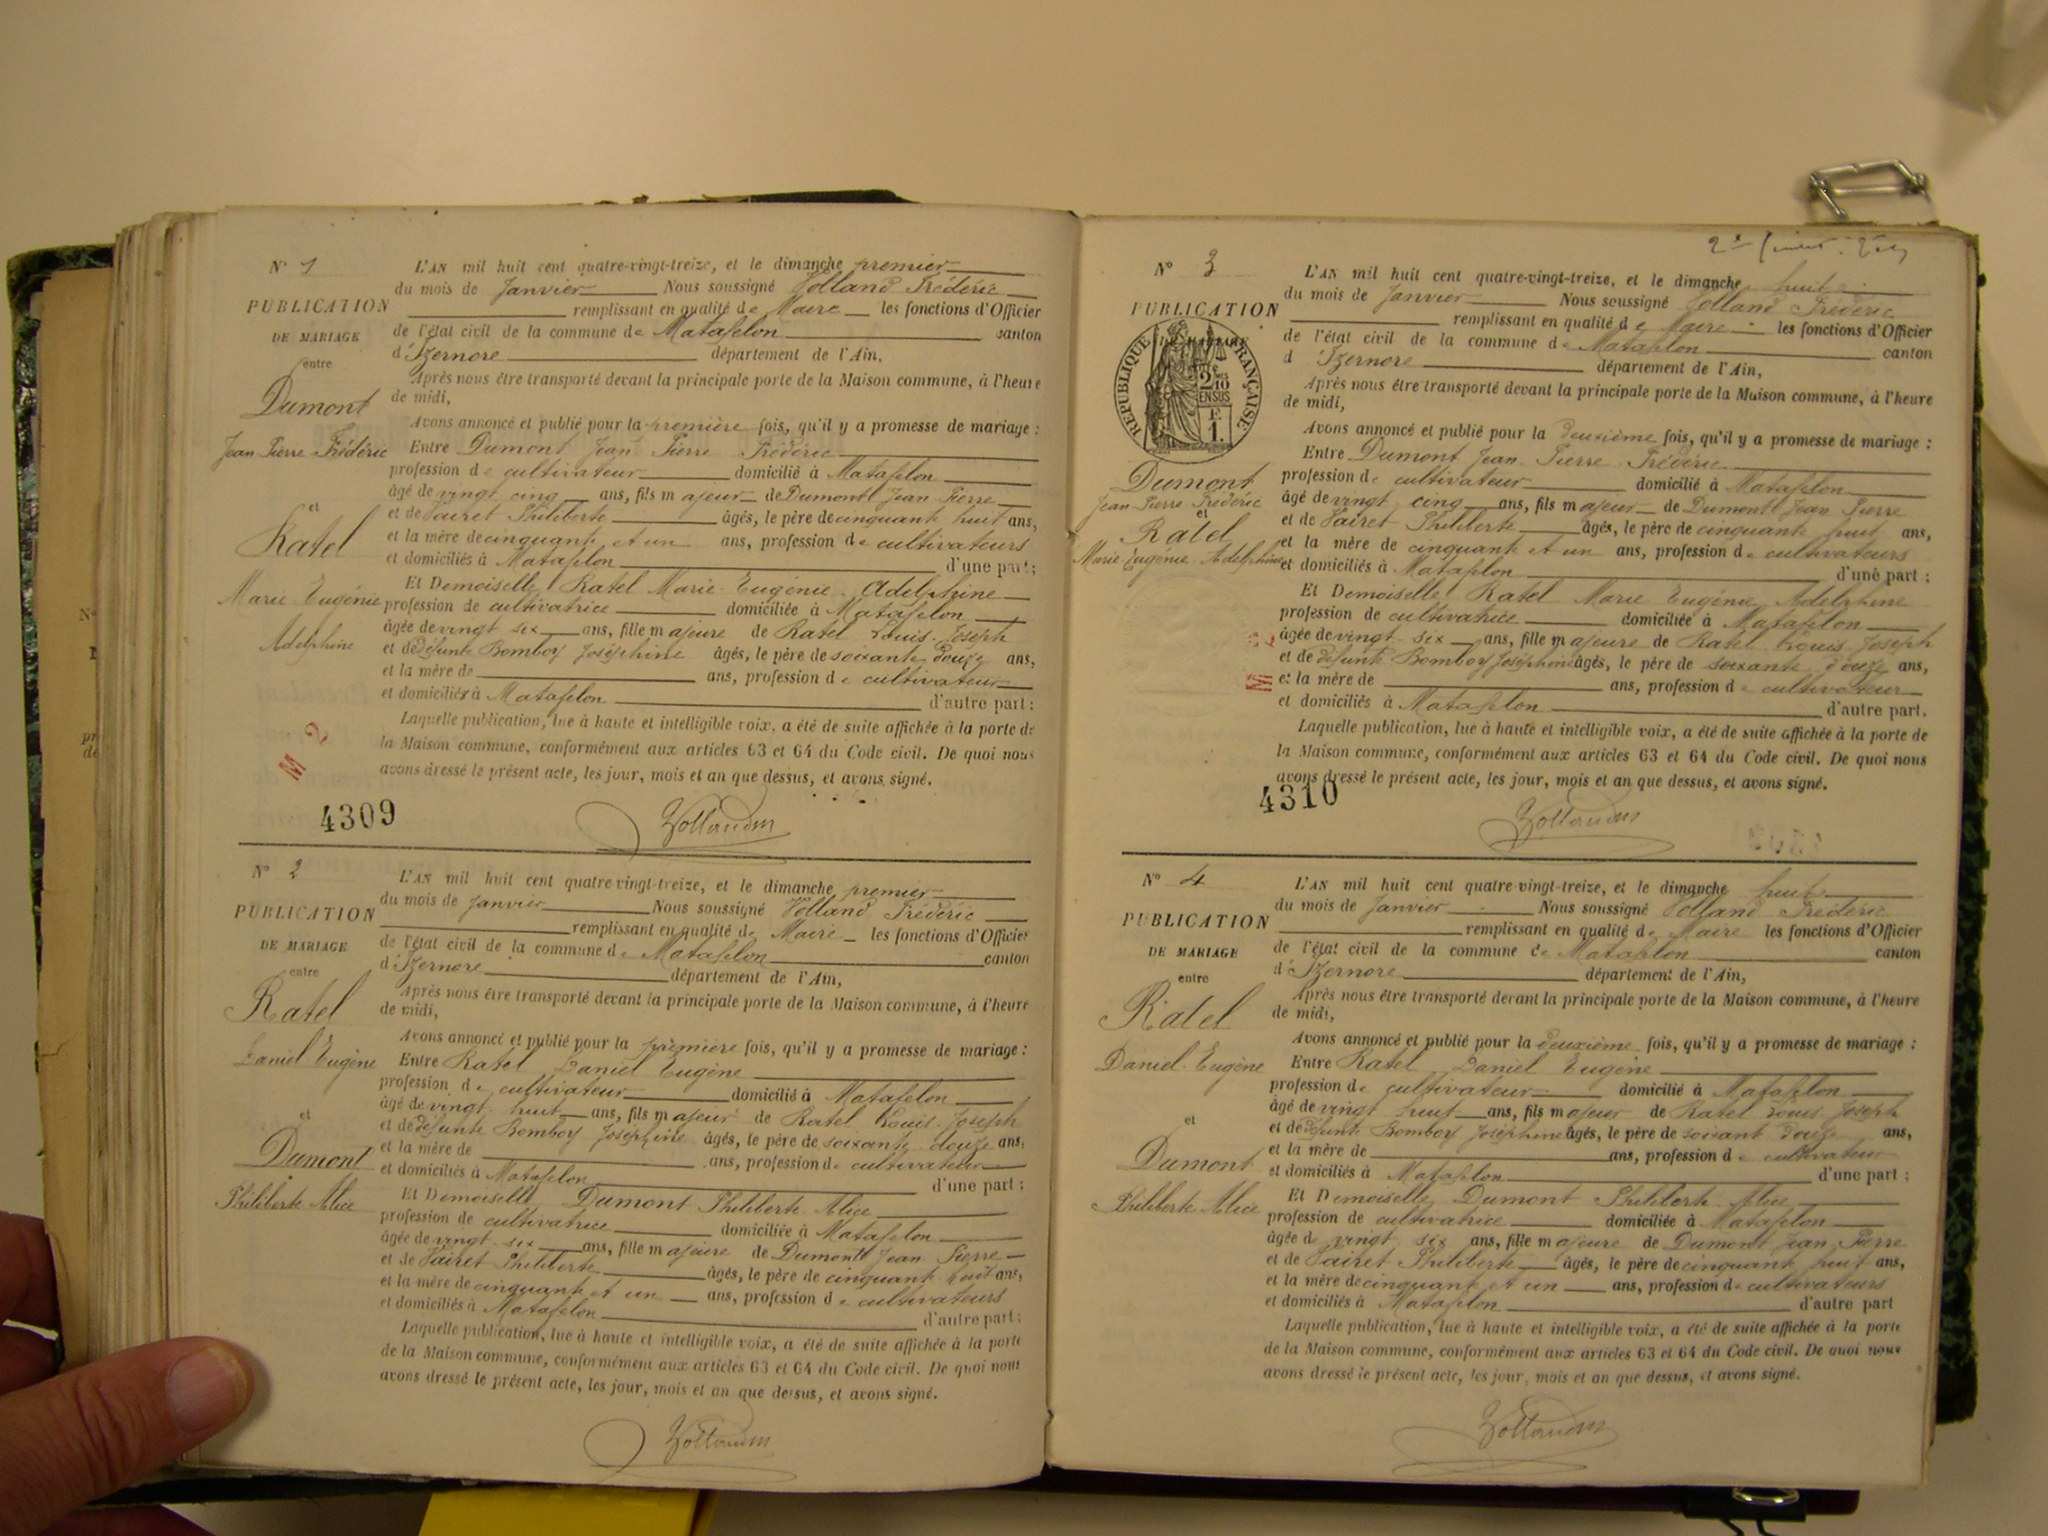 N° 1
PUBLICATION
DE MARIAGE
entre
Dumont
Jean Pierre Frédéric
et
Ratel
Marie Eugénie
Adelphine
L'AN mil huit cent quatre-vingt-treize, et le dimanche premier
du mois de Janvier Nous soussigné Volland Frédéric
remplissant en qualité de Maire les fonctions d'Officier
de l'état civil de la commune de Matafelon canton
d'Izernore département de l'Ain,
Après nous être transporté devant la principale porte de la Maison commune, à l'heure
de midi,
Avons annoncé et publié pour la première fois, qu'il y a promesse de mariage :
Entre Dumont Jean Pierre Frédéric
profession de cultivateur domicilié à Matafelon
âgé de vingt cinq ans, fils majeur de Dumont Jean Pierre
et de Vairet Philiberte âgés, le père de cinquante huit ans,
et la mère de cinquante et un ans, profession de cultivateurs
et domiciliés à Matafelon d'une part ;
Et Demoiselle Ratel Marie Eugénie Adelphine
profession de cultivatrice domiciliée à Matafelon
âgée de vingt six ans, fille majeure de Ratel Louis Joseph
et de défunte Bomboy Joséphine âgés, le père de soixante douze ans,
et la mère de ans, profession de cultivateur
et domiciliés à Matafelon d'autre part :
Laquelle publication, lue à haute et intelligible voix, a été de suite affichée à la porte de
la Maison commune, conformément aux articles 63 et 64 du Code civil. De quoi nous
avons dressé le présent acte, les jour, mois et an que dessus, et avons signé.
M 2
4309
N° 2
PUBLICATION
DE MARIAGE
entre
Ratel
Daniel Eugène
et
Dumont
Philiberte Alice
L'AN mil huit cent quatre-vingt-treize, et le dimanche premier
du mois de Janvier Nous soussigné Volland Frédéric
remplissant en qualité de Maire les fonctions d'Officier
de l'état civil de la commune de Matafelon canton
d'Izernore département de l'Ain,
Après nous être transporté devant la principale porte de la Maison commune, à l'heure
de midi,
Avons annoncé et publié pour la première fois, qu'il y a promesse de mariage :
Entre Ratel Daniel Eugène
profession de cultivateur domicilié à Matafelon
âgé de vingt huit ans, fils majeur de Ratel Louis Joseph
et de défunte Bomboy Joséphine âgés, le père de soixante douze ans,
et la mère de ans, profession de cultivateur
et domiciliés à Matafelon d'une part ;
Et Demoiselle Dumont Philiberte Alice
profession de cultivatrice domiciliée à Matafelon
âgée de vingt six ans, fille majeure de Dumont Jean Pierre
et de Vairet Philiberte âgés, le père de cinquante huit ans,
et la mère de cinquante et un ans, profession de cultivateurs
et domiciliés à Matafelon d'autre part :
Laquelle publication, lue à haute et intelligible voix, a été de suite affichée à la porte
de la Maison commune, conformément aux articles 63 et 64 du Code civil. De quoi nous
avons dressé le présent acte, les jour, mois et an que dessus, et avons signé.
N° 3
PUBLICATION
RÉPUBLIQUE FRANÇAISE
2/10
EN SUS
F.
1.
Dumont
Jean Pierre Frédéric
et
Ratel
Marie Eugénie Adelphine
L'AN mil huit cent quatre-vingt-treize, et le dimanche huit
du mois de Janvier Nous soussigné Volland Frédéric
remplissant en qualité de Maire les fonctions d'Officier
de l'état civil de la commune de Matafelon canton
d Izernore département de l'Ain,
Après nous être transporté devant la principale porte de la Maison commune, à l'heure
de midi,
Avons annoncé et publié pour la deuxième fois, qu'il y a promesse de mariage :
Entre Dumont Jean Pierre Frédéric
profession de cultivateur domicilié à Matafelon
âgé de vingt cinq ans, fils majeur de Dumont Jean Pierre
et de Vairet Philiberte âgés, le père de cinquante huit ans,
et la mère de cinquante et un ans, profession de cultivateurs
et domiciliés à Matafelon d'une part ;
Et Demoiselle Ratel Marie Eugénie Adelphine
profession de cultivatrice domiciliée à Matafelon
âgée de vingt six ans, fille majeure de Ratel Louis Joseph
et de défunte Bomboy Joséphine âgés, le père de soixante douze ans,
et la mère de ans, profession de cultivateur
et domiciliés à Matafelon d'autre part.
Laquelle publication, lue à haute et intelligible voix, a été de suite affichée à la porte de
la Maison commune, conformément aux articles 63 et 64 du Code civil. De quoi nous
avons dressé le présent acte, les jour, mois et an que dessus, et avons signé.
4310
N° 4
PUBLICATION
DE MARIAGE
entre
Ratel
Daniel Eugène
et
Dumont
Philiberte Alice
L'AN mil huit cent quatre-vingt-treize, et le dimanche huit
du mois de Janvier Nous soussigné Volland Frédéric
remplissant en qualité de Maire les fonctions d'Officier
de l'état civil de la commune de Matafelon canton
d'Izernore département de l'Ain,
Après nous être transporté devant la principale porte de la Maison commune, à l'heure
de midi,
Avons annoncé et publié pour la deuxième fois, qu'il y a promesse de mariage :
Entre Ratel Daniel Eugène
profession de cultivateur domicilié à Matafelon
âgé de vingt huit ans, fils majeur de Ratel Louis Joseph
et de défunte Bomboy Joséphine âgés, le père de soixant douze ans,
et la mère de ans, profession de cultivateur
et domiciliés à Matafelon d'une part ;
Et Demoiselle Dumont Philiberte Alice
profession de cultivatrice domiciliée à Matafelon
âgée de vingt six ans, fille majeure de Dumont Jean Pierre
et de Vairet Philiberte âgés, le père de cinquante huit ans,
et la mère de cinquante et un ans, profession de cultivateurs
et domiciliés à Matafelon d'autre part
Laquelle publication, lue à haute et intelligible voix, a été de suite affichée à la porte
de la Maison commune, conformément aux articles 63 et 64 du Code civil. De quoi nous
avons dressé le présent acte, les jour, mois et an que dessus, et avons signé.